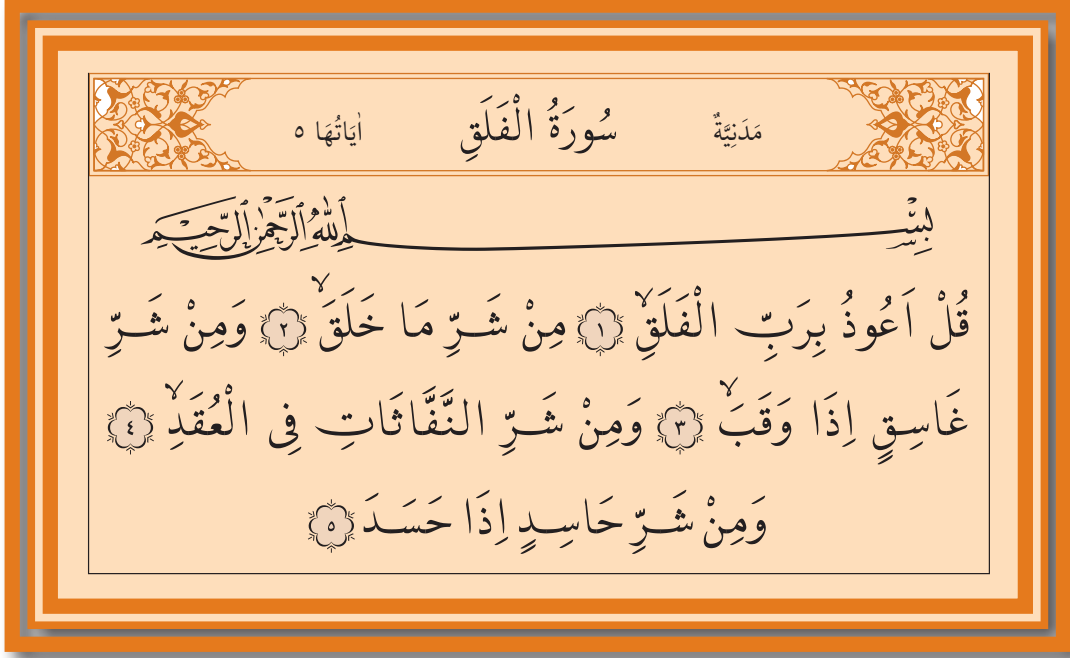 مَدَنِيَّةٌ سُورَةُ الْفَلَقِ اٰيَاتُهَا ٥
بِسْــــــمِ اللّٰهِ الرَّحْمٰنِ الرَّحٖيمِ
قُلْ اَعُوذُ بِرَبِّ الْفَلَقِۙ ﴿١﴾ مِنْ شَرِّ مَا خَلَقَۙ ﴿٢﴾ وَمِنْ شَرِّ
غَاسِقٍ اِذَا وَقَبَۙ ﴿٣﴾ وَمِنْ شَرِّ النَّفَّاثَاتِ فِى الْعُقَدِۙ ﴿٤﴾
وَمِنْ شَرِّ حَاسِدٍ اِذَا حَسَدَ ﴿٥﴾